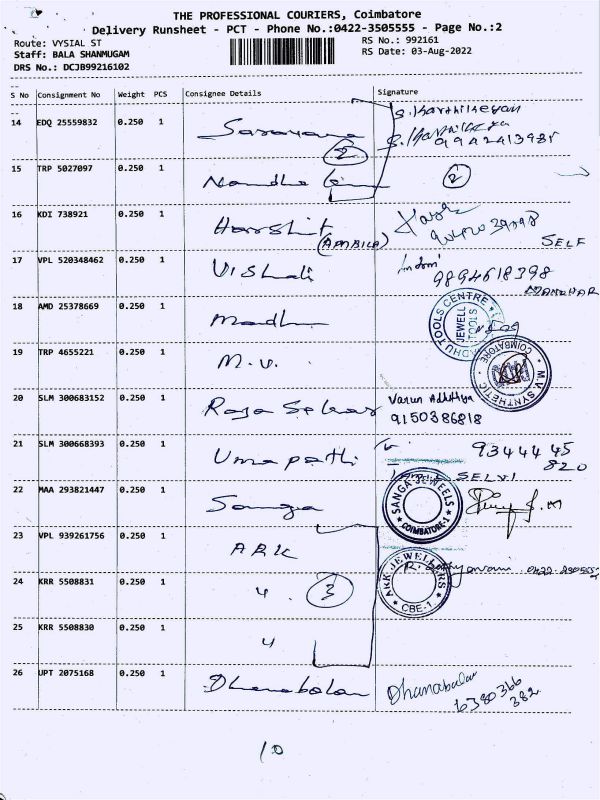 THE PROFESSIONAL COURIERS, Coimbatore
Delivery Runsheet - PCT - Phone No.:0422-3505555 - Page No.:2
Route: VYSIAL ST
RS No.: 992161
Staff: BALA SHANMUGAM
RS Date: 03-Aug-2022
DRS No.: DCJB99216102
S No Consignment No Weight PCS Consignee Details Signature
14 EDQ 25559832 0.250 1 Saravana S. Karthikeyan
S. Karthikeya
2 9942413985
15 TRP 5027097 0.250 1 Nandha 2
16 KDI 738921 0.250 1 Harshit
(AMBICA) SELF
17 VPL 520348462 0.250 1 Vishali 9894618398
MANOHAR
18 AMD 25378669 0.250 1 Madhu MADHU TOOLS CENTRE JEWELL TOOLS
19 TRP 4655221 0.250 1 M.V. M.V. SYNTHETIC COIMBATORE
20 SLM 300683152 0.250 1 Raja Sekar Varun Adhithya
9150386818
21 SLM 300668393 0.250 1 Umapathi 93444 45
820
SELVI
22 MAA 293821447 0.250 1 Sanga SANGA JEWEELS COIMBATORE-1
23 VPL 939261756 0.250 1 ARK
24 KRR 5508831 0.250 1 4 3 ARK JEWELLERS CBE-1
25 KRR 5508830 0.250 1 4
26 UPT 2075168 0.250 1 Dhanabalan Dhanabalan
6380366
382
10